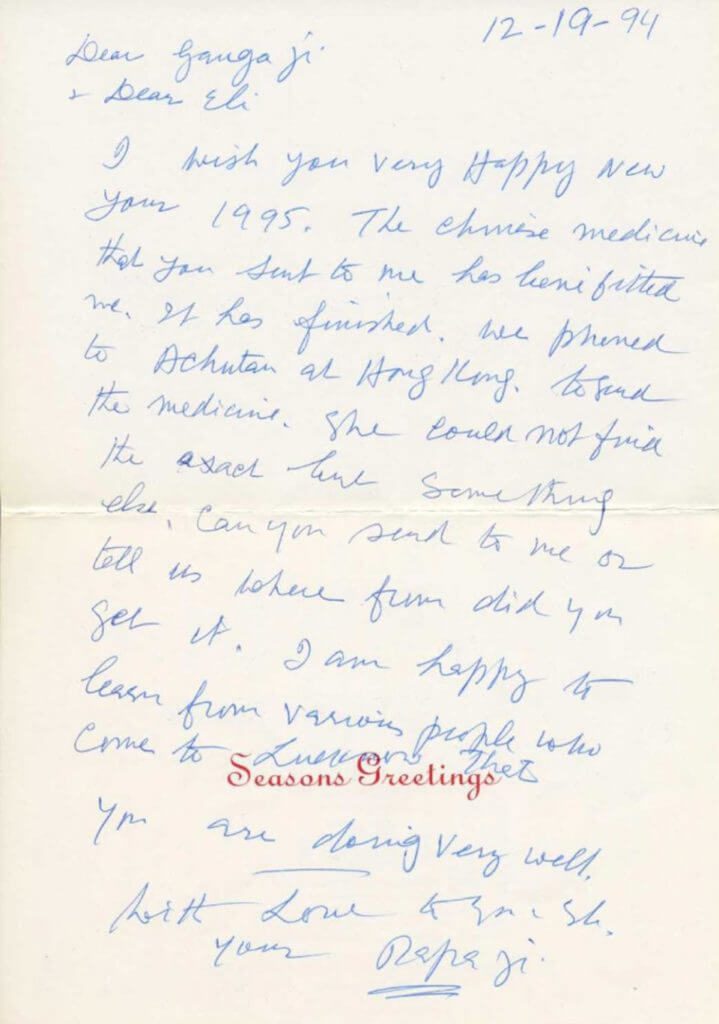 12-19-94
Dear Ganga ji
+ Dear Eli
I wish you very Happy New
Year 1995. The chinese medicine
that you sent to me has benifitted
me. It has finished. We phoned
to Achutan at Hong Kong. to send
the medicine. She could not find
the exact but something
else. Can you send to me or
tell us where from did you
get it. I am happy to
learn from various people who
come to Lucknow that
Seasons Greetings
you are doing very well.
With Love to you &
your Papa ji.